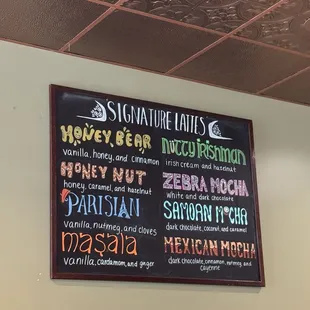 SIGNATURE LATTES
HONEY BEAR
vanilla, honey, and cinnamon
HONEY NUT
honey, caramel, and hazelnut
PARISIAN
vanilla, nutmeg, and cloves
masala
vanilla, cardamom, and ginger
Nutty Irishman
irish cream and hazelnut
ZEBRA MOCHA
White and dark chocolate
SAMOAN MOCHA
dark chocolate, coconut, and caramel
MEXICAN MOCHA
dark chocolate, cinnamon, nutmeg, and
cayenne